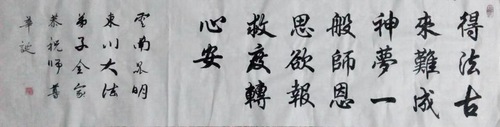 得法古
來難成
神夢一
般師恩
思欲報
救度轉
心安
雲南昆明
東川大法
弟子全家
恭祝師尊
華誕